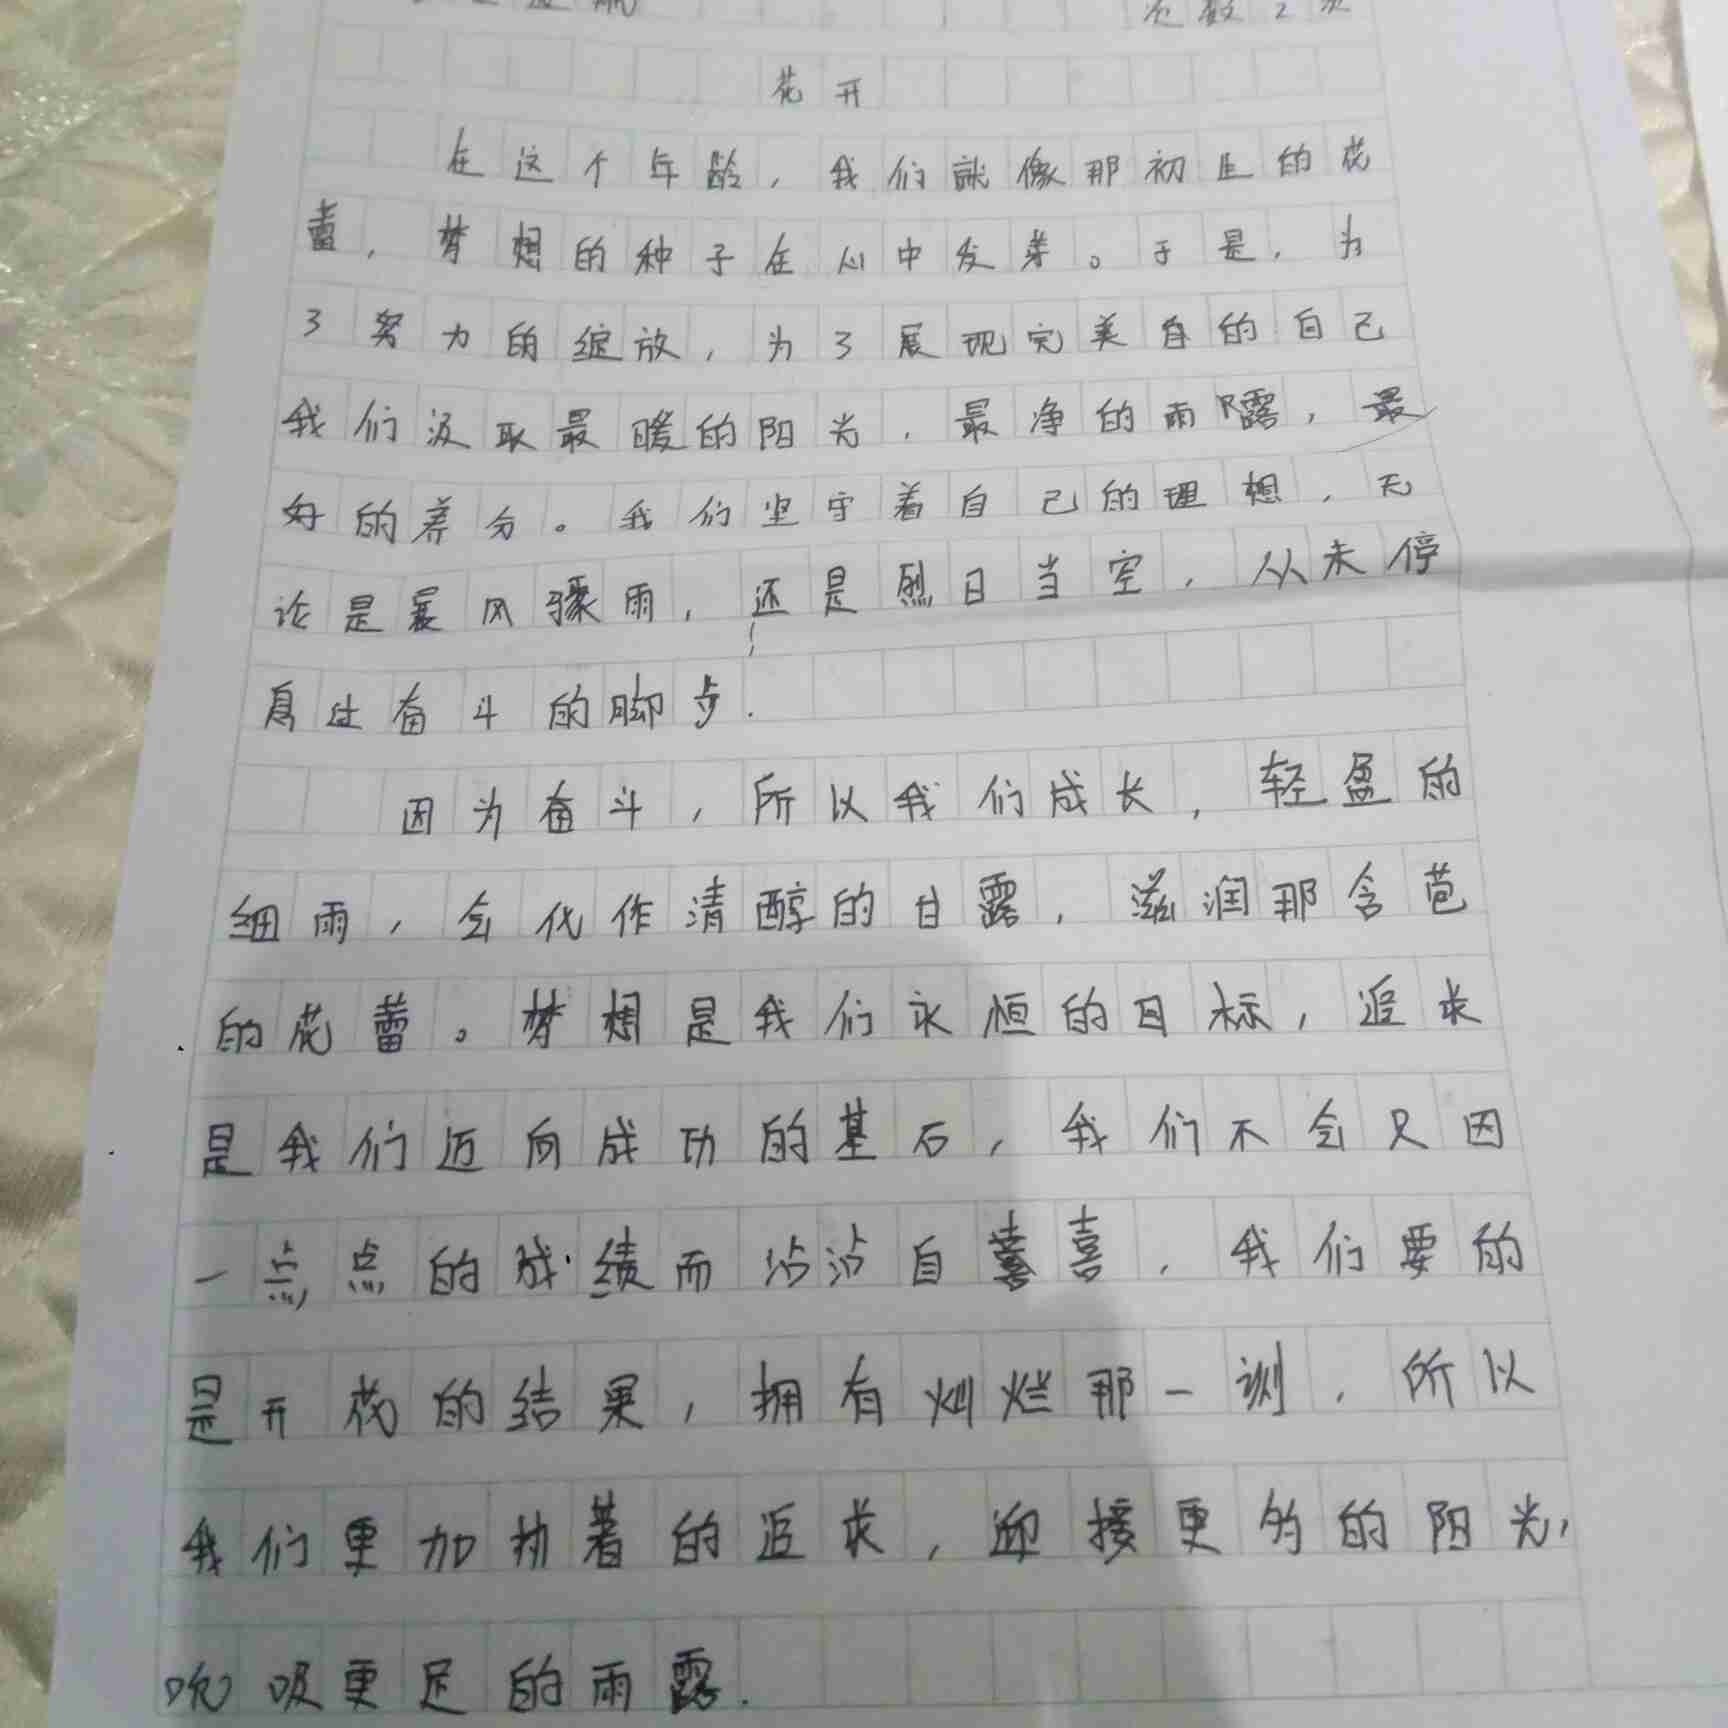 次数2次
花开
在这个年龄，我们就像那初生的花
蕾，梦想的种子在心中发芽。于是，为
了努力的绽放，为了展现完美自的自己
我们汲取最暖的阳光，最净的雨露，最
好的养分。我们坚守着自己的理想，无
论是暴风骤雨，还是烈日当空，从未停
息过奋斗的脚步.
因为奋斗，所以我们成长，轻盈的
细雨，会化作清醇的甘露，滋润那含苞
的花蕾。梦想是我们永恒的目标，追求
是我们迈向成功的基石，我们不会只因
一点点的成绩而沾沾自喜，我们要的
是开花的结果，拥有灿烂那一，所以
我们更加执着的追求，迎接更的阳光，
吮吸更足的雨露.